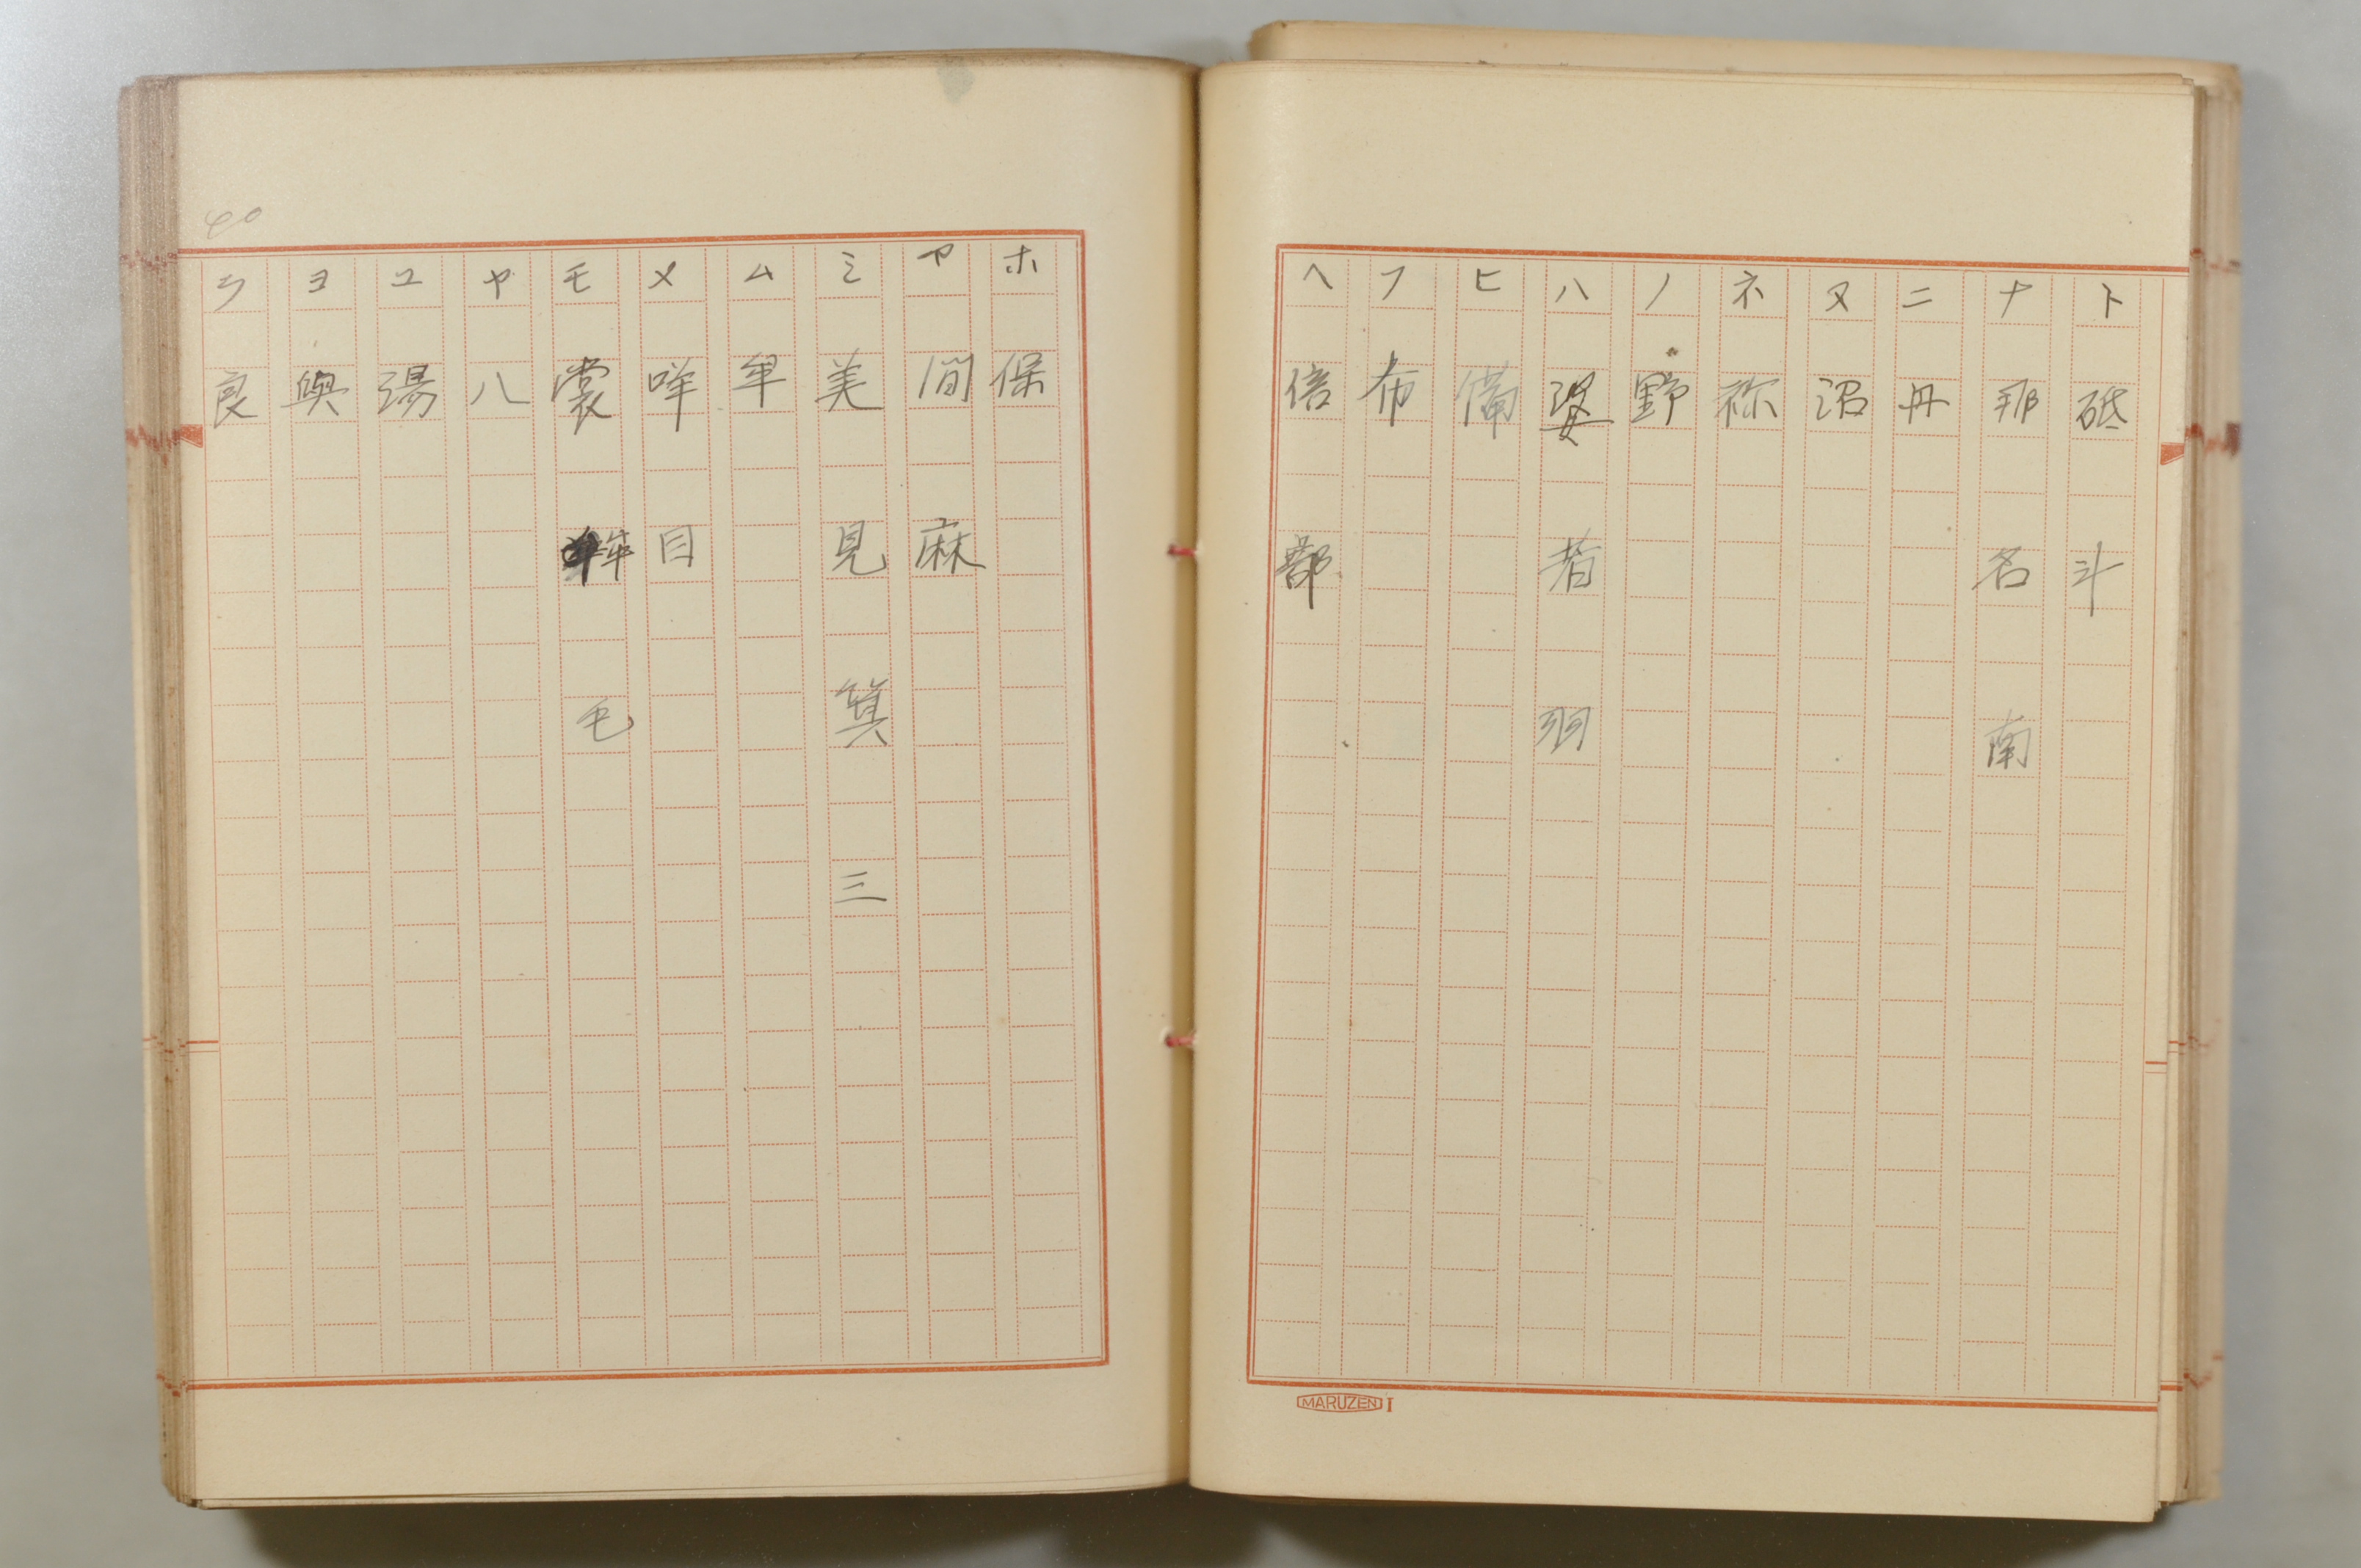 ト 砥 斗
ナ 那 名 南
ニ 丹
ヌ 沼
ネ 祢
ノ 野
ハ 婆 者 羽
ヒ 備
フ 布
ヘ 倍 部
MARUZEN I
ホ 保
マ 間 麻
ミ 美 見 箕 三
ム 牟
メ 咩 目
モ 裳 牟 毛
ヤ 八
ユ 湯
ヨ 與
ラ 良
40